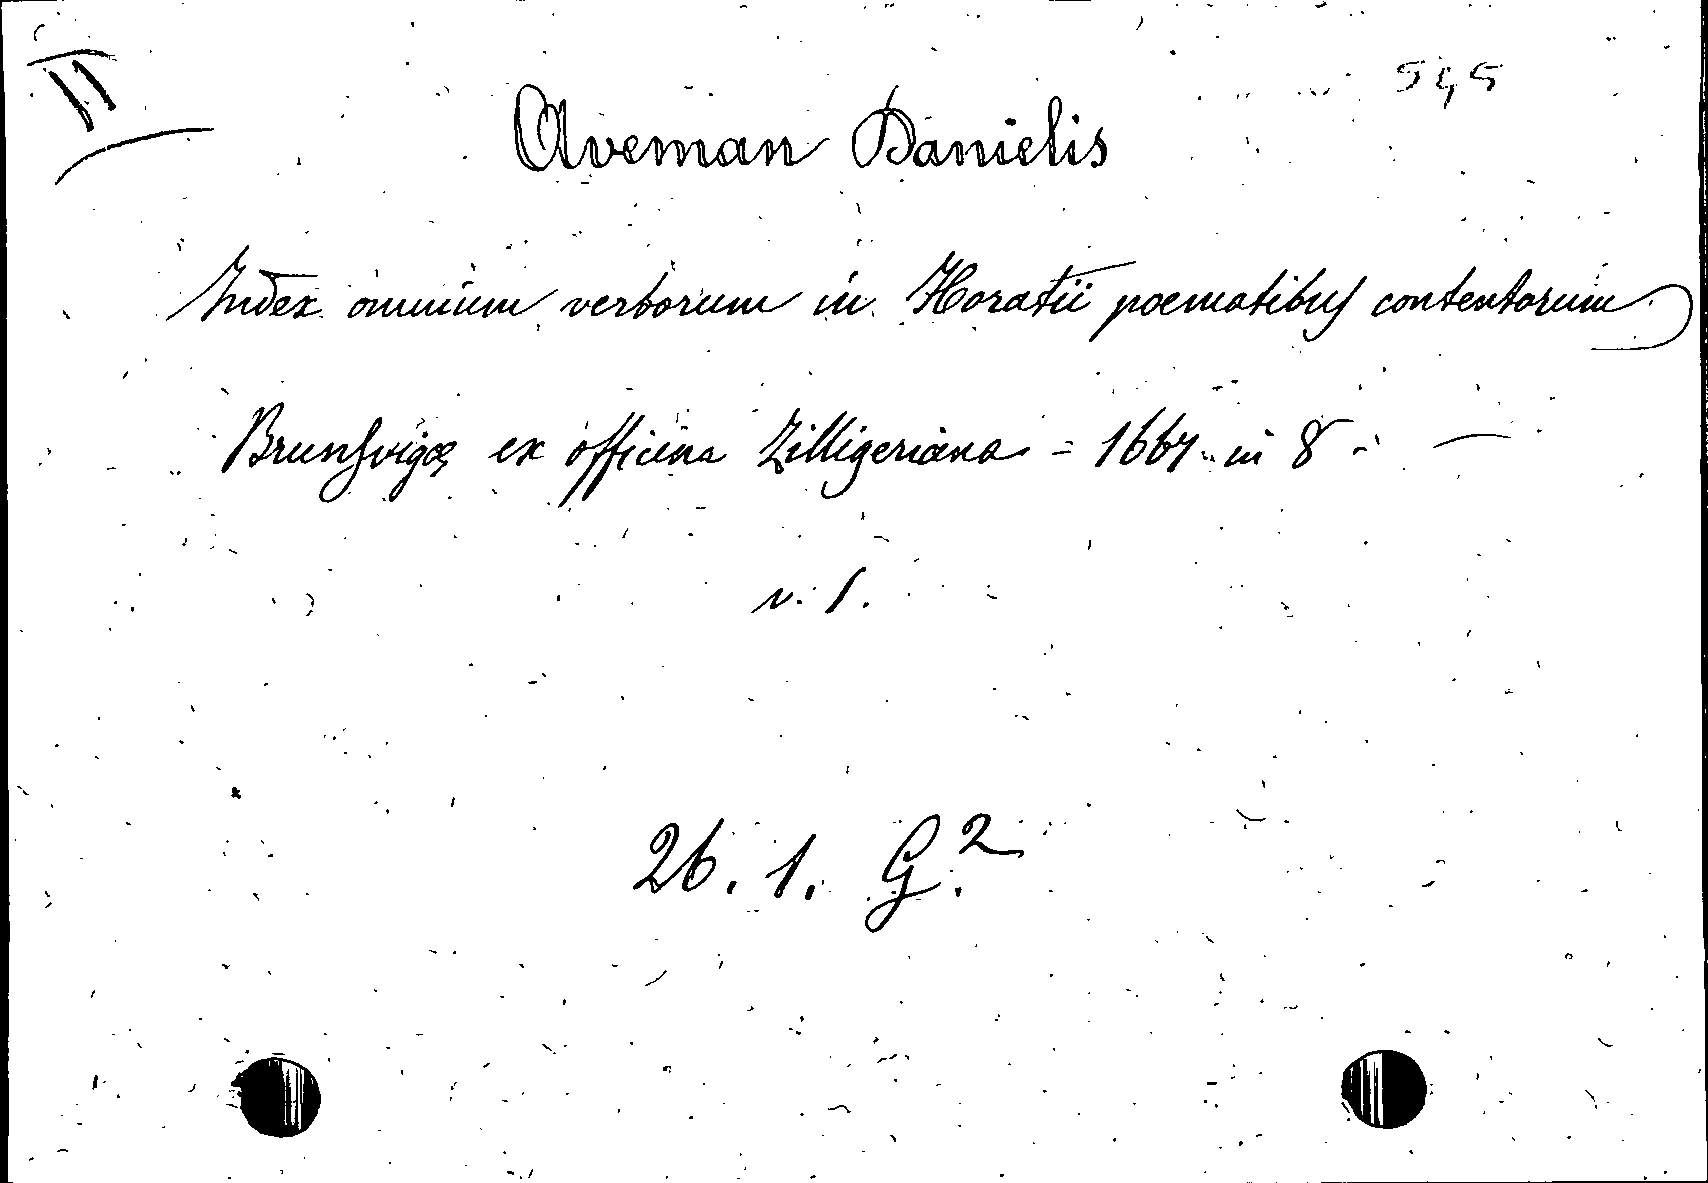 II
545
Aveman Danielis
Index omnium verborum in Horatii poematibus contentorum
Brunsvigæ ex officina Zilligeriana = 1667 - in 8 - —
v. 1.
26. 1. G.²